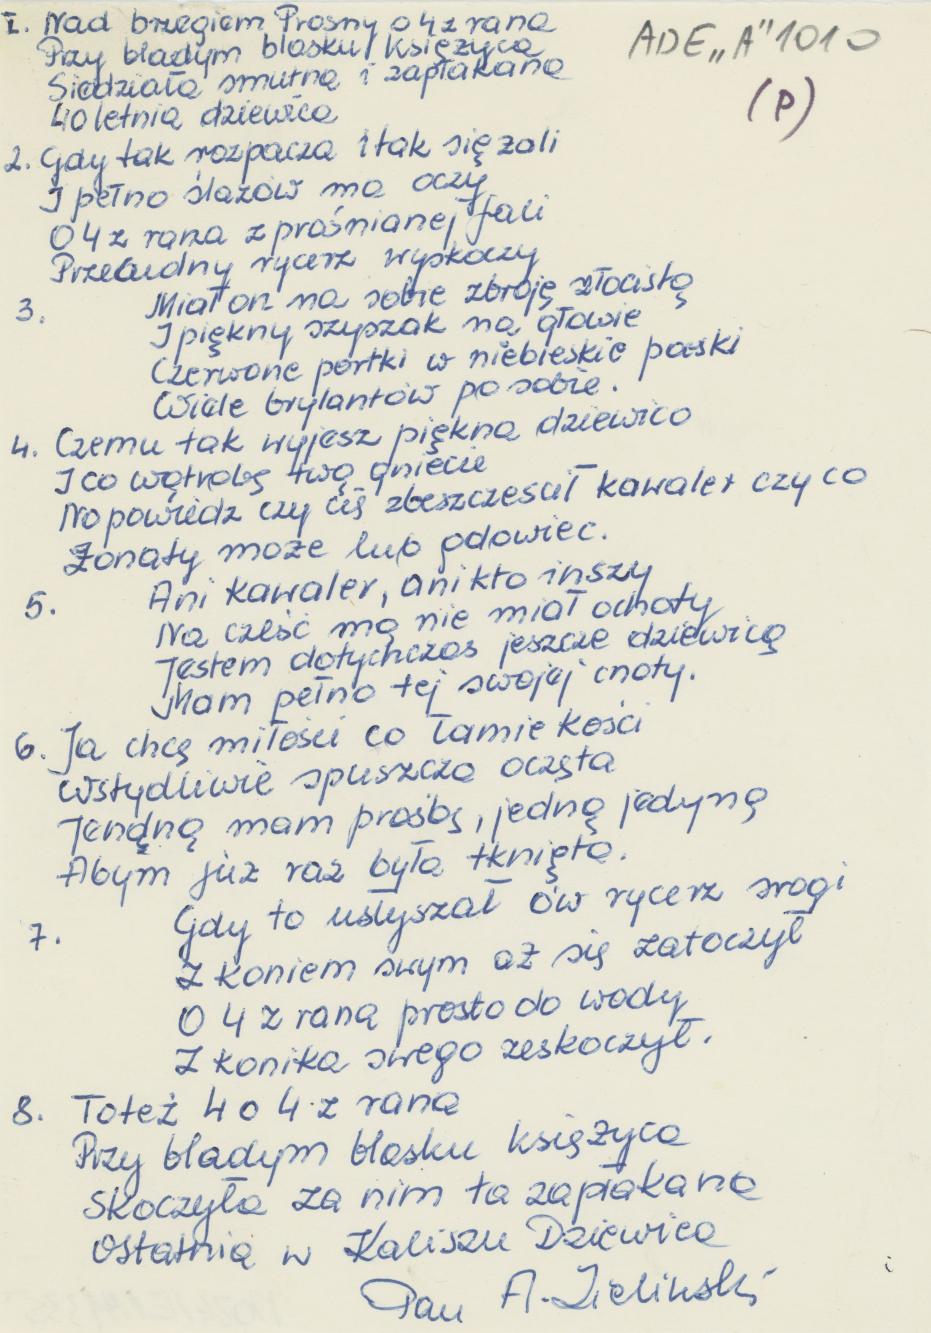 I. Nad brzegiem Prosny o 4 z rana
ADE „A" 1010
Przy bladym blasku księżyca
(P)
Siedziała smutna i zapłakana
40 letnia dziewica
2. Gdy tak rozpacza i tak się żali
I pełno ślazów ma oczy
O 4 z rana z prośnianej fali
Przecudny rycerz wyskoczy
3. Miał on na sobie zbroję złocistą
I piękny szyszak na głowie
Czerwone portki w niebieskie paski
Wiele brylantów po sobie.
4. Czemu tak wyjesz piękna dziewico
I co wątrobę twą gniecie
No powiedz czy cię zbeszcześcił kawaler czy co
Żonaty może lub gdowiec.
5. Ani kawaler, ani kto inszy
Na cześć mą nie miał ochoty
Jestem dotychczas jeszcze dziewicą
Mam pełno tej swojej cnoty.
6. Ja chcę miłości co łamie kości
Wstydliwie spuszcza oczęta
Jendną mam prośbę, jedną jedyną
Abym już raz była tknięta.
7. Gdy to usłyszał ów rycerz srogi
Z koniem swym aż się zatoczył
O 4 z rana prosto do wody
Z konika swego zeskoczył.
8. Toteż 4 o 4 z rana
Przy bladym blasku księżyca
Skoczyła za nim ta zapłakana
Ostatnia w Kaliszu Dziewica
Pan A. Zieliński